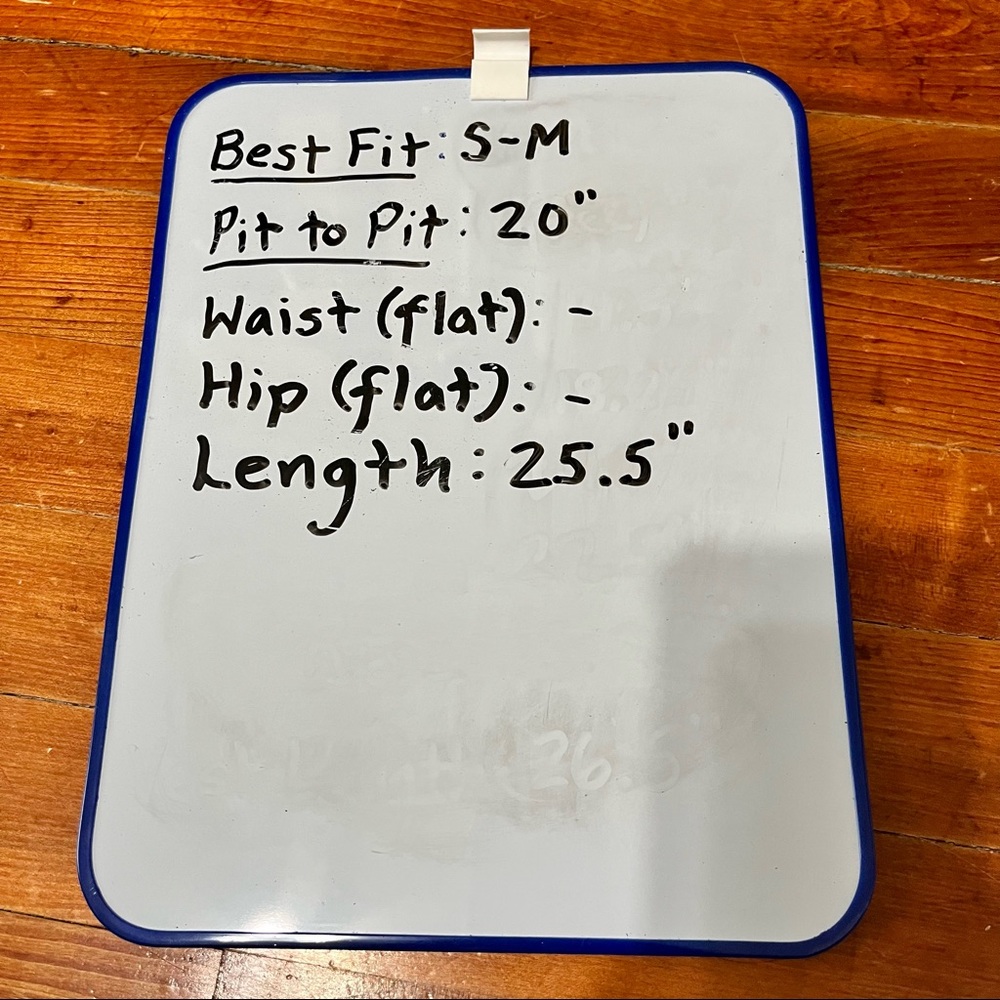 Best Fit: S-M
Pit to Pit: 20"
Waist (flat): -
Hip (flat): -
Length: 25.5"